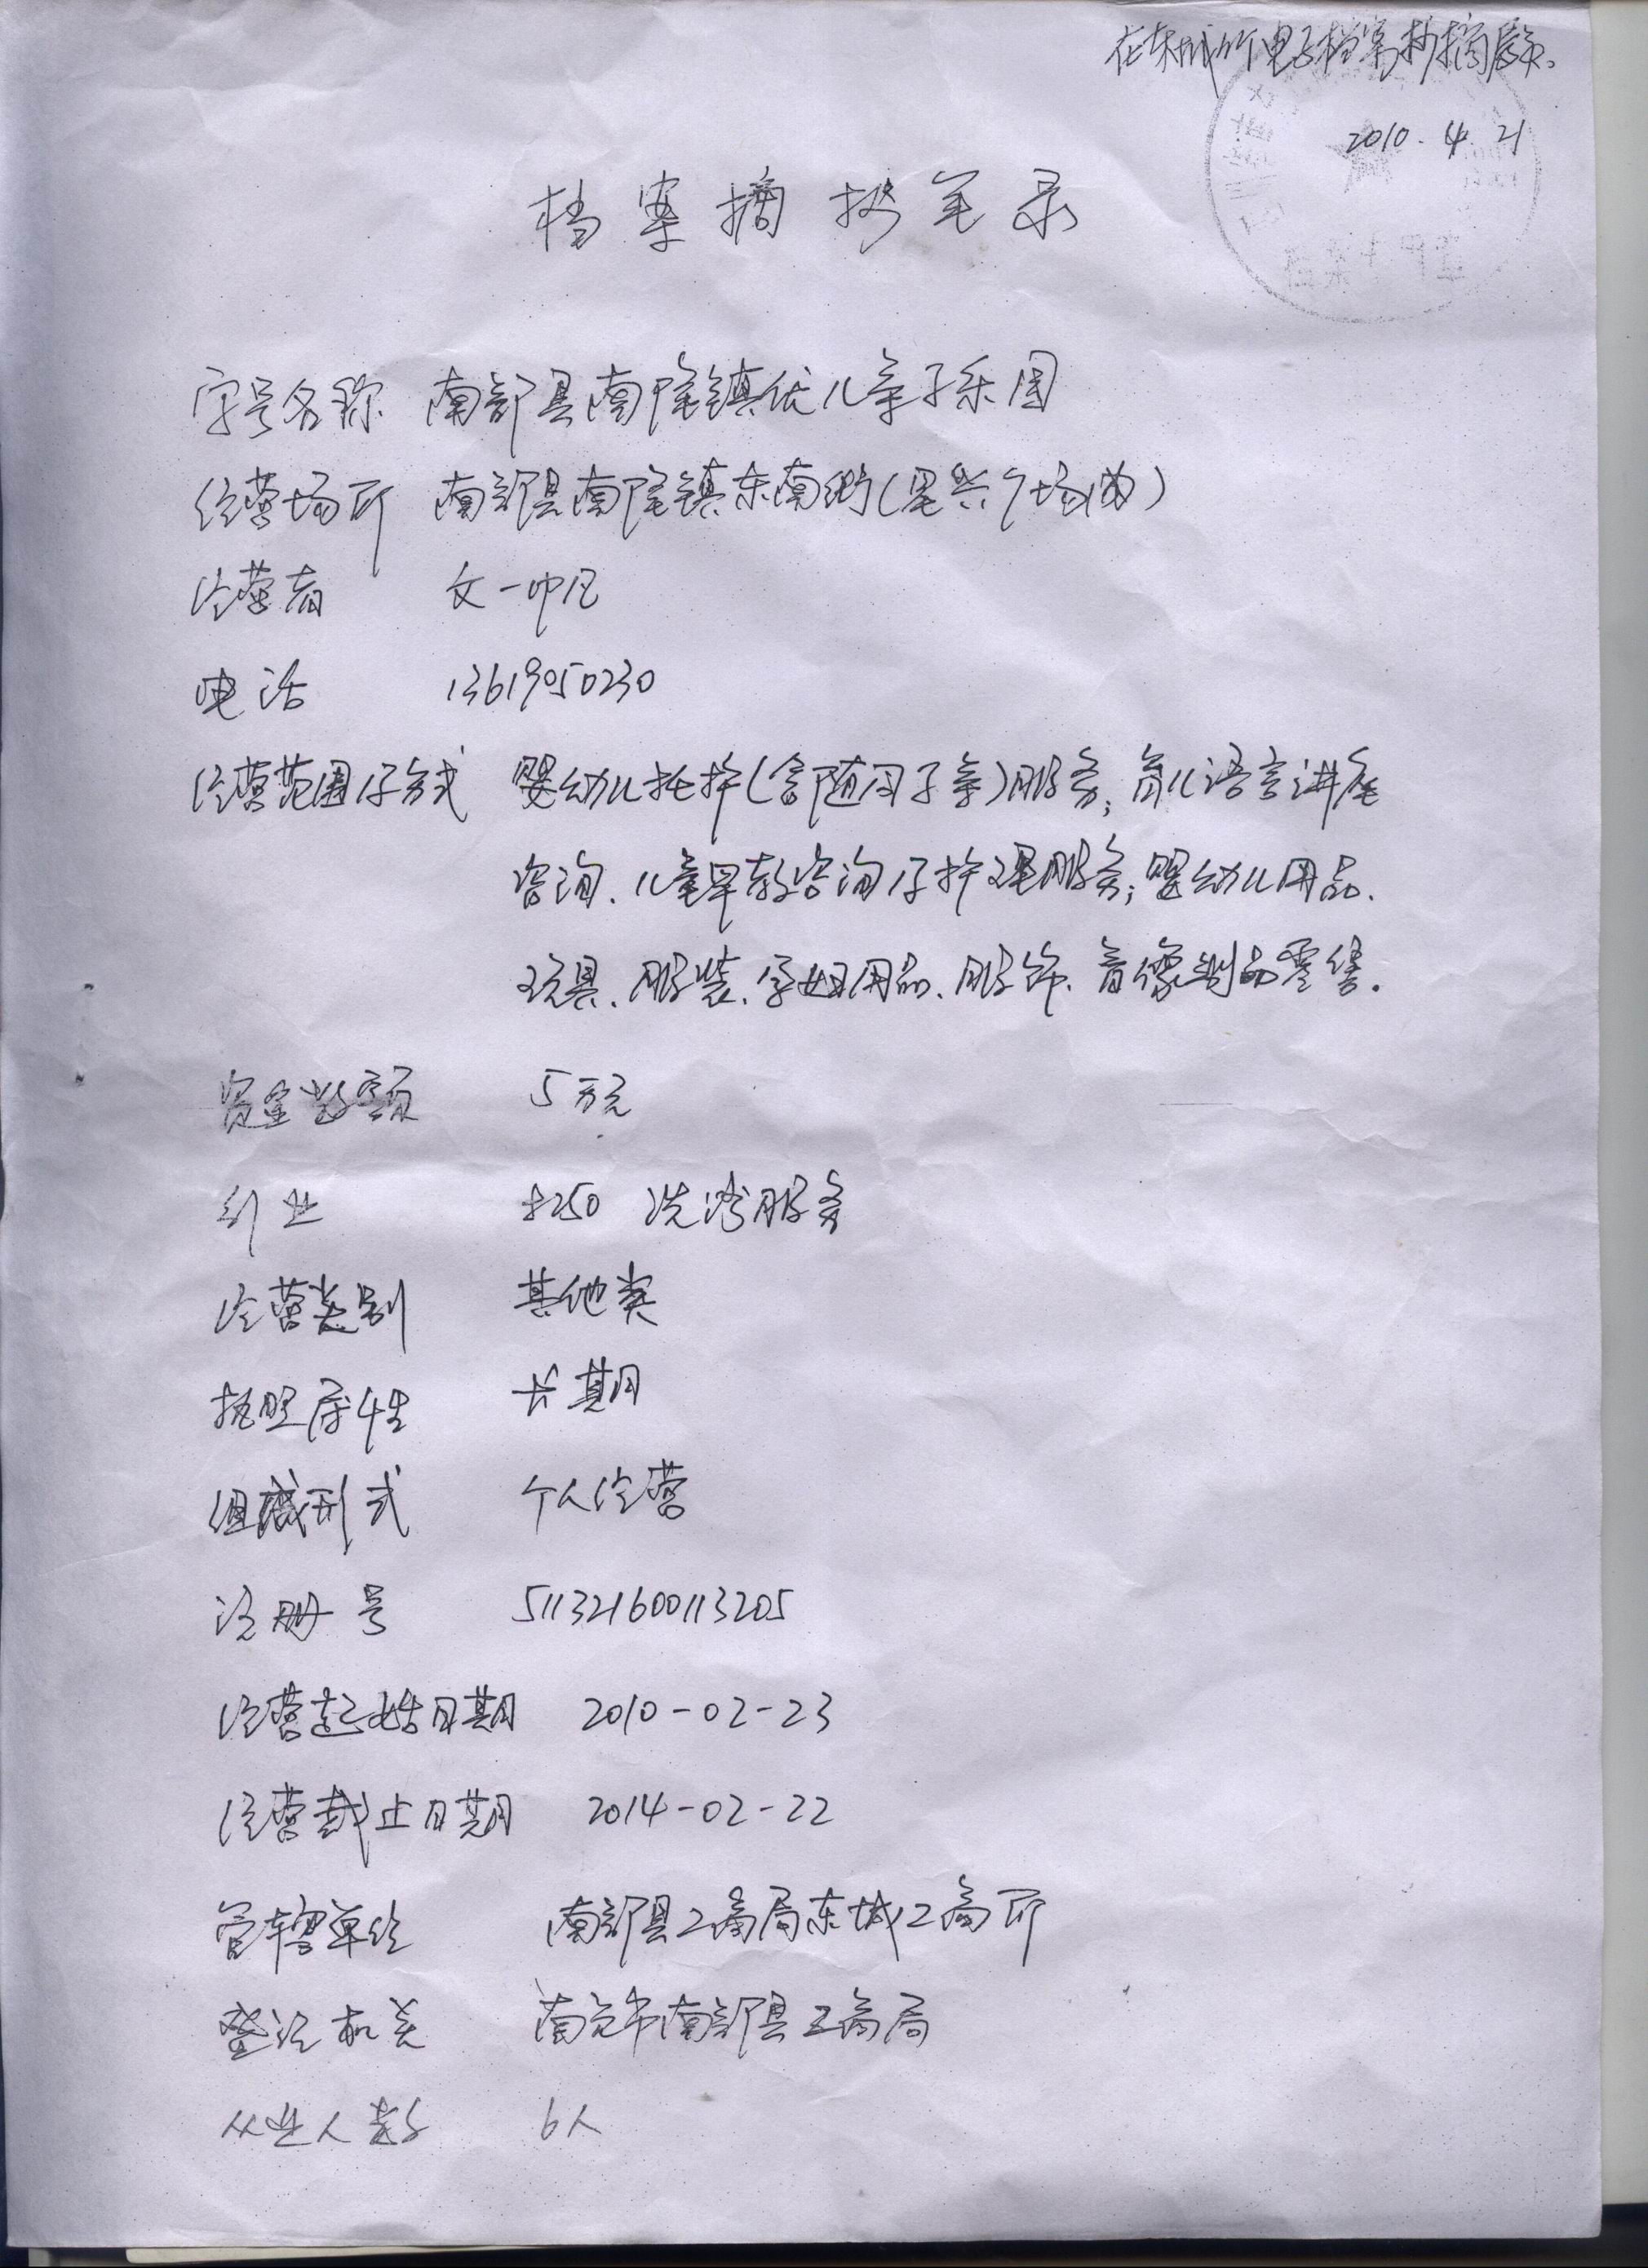 在东城所电子档案抄摘属实。
2010.4.21
档案摘抄笔录
字号名称 南部县南隆镇优儿亲子乐园
经营场所 南部县南隆镇东南街(隆兴广场内)
经营者 文一帆
电话 13619050230
经营范围及方式 婴幼儿托护(含随母子亲)服务;育儿语言讲座
咨询、儿童早教咨询及护理服务;婴幼儿用品、
玩具、服装、孕妇用品、服饰、音像制品零售。
资金数额 5万元
行业 8250 洗澡服务
经营类别 其他类
执照属性 长期
组成形式 个人经营
注册号 511321600113205
经营起始日期 2010-02-23
经营截止日期 2014-02-22
管辖单位 南部县工商局东城工商所
登记机关 南充市南部县工商局
从业人数 6人